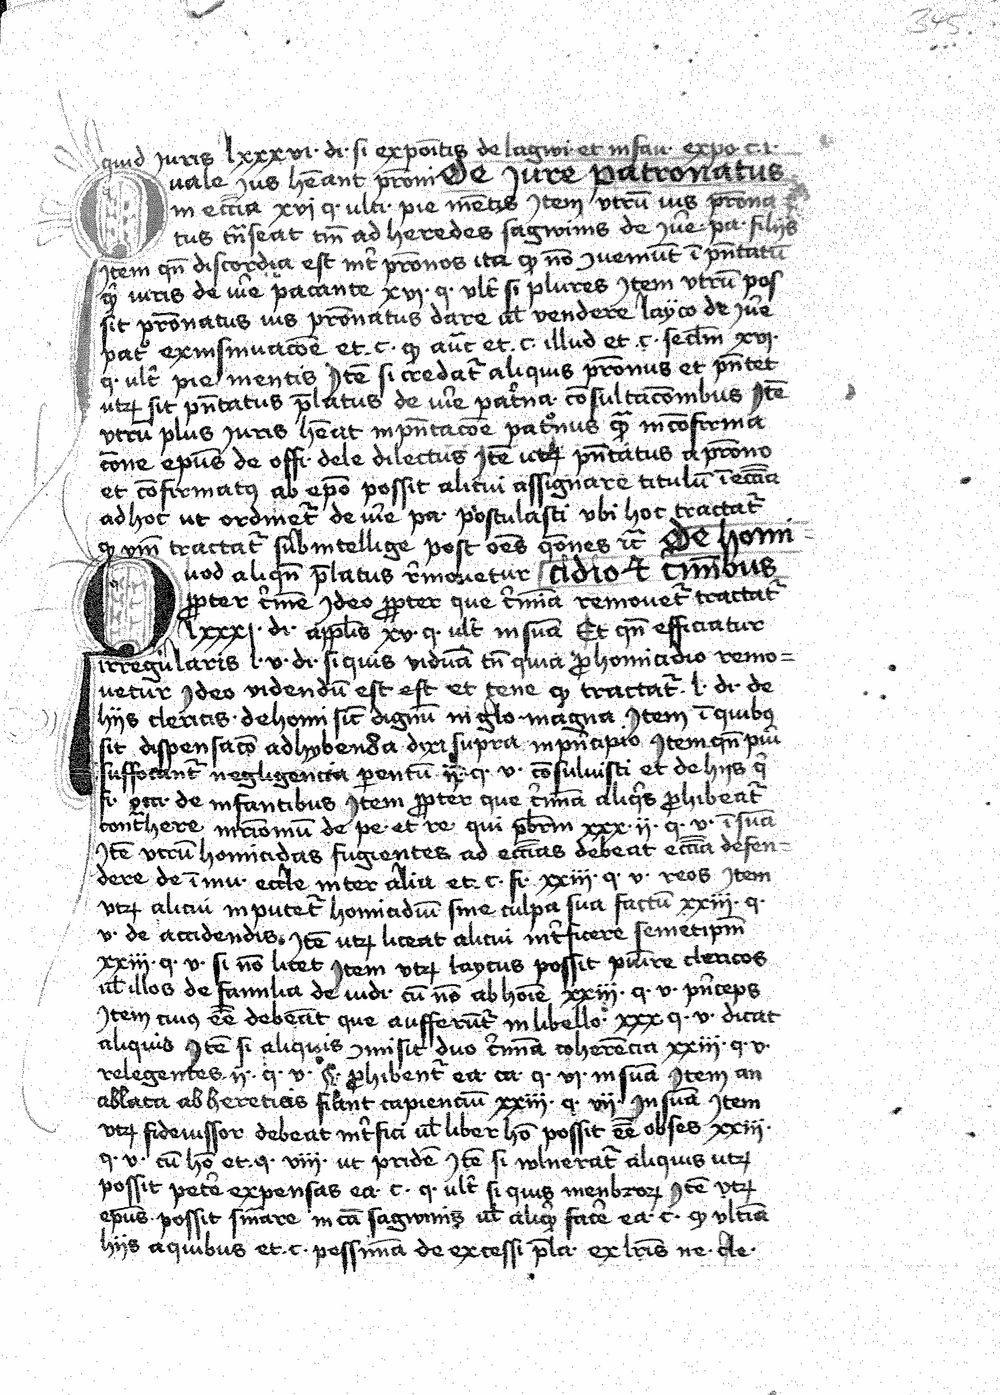 345.
quid iuris lxxxvi. di. si expoitis de lagwi et infan. expo. c. i.
Quale ius hēant prōni De iure patronatus
in eccīa xvi q. ulti. pie mētis Item vtrū ius prōna
tus trāseat tm̄ ad heredes sagwinis de iur̄e pa. filijs
Item qn̄ discordia est int̄ prōnos ita qp nō 2ueniūt ī pn̄tatū
iuris de iur̄e pacante xvi. q. ult̄ si plures Item vtrū pos
sit prōnatus ius prōnatus dare ul̄ vendere layco de iur̄e
pat exinsinuacōe et. c. qp aut̄ et. c. illud et c. seclm̄ xvi.
q. ult̄ pie mentis Itē si credat̄ aliquis prōnus et pn̄tet
utrz sit pn̄tatus p̄latus de iur̄e patna. cōsultacōnibus Itē
vtrū plus iuris hēat in pn̄tacōe patonus q̄ in cōfirma
cōne ep̄us de offi. dele dilectus Itē utrz pn̄tatus a prōno
et cōfirmatus ab ep̄o possit alicui assignare titulū ī eccīa
ad hoc ut ordinet̄ de iur̄e pa. postulasti vbi hoc tractat̄
tractat̄ subintellige post oēs q̄ones De homi=
Quod aliqn̄ p̄latus rmouetur cidio et c̄inibus
ppter c̄ime Ideo ppter que c̄imīa remouet̄ tractat̄
lxxxi. di. xv. q. ult̄ in suā Et qn̄ efficiatur
irregularis l. v. di. si quis viduā tn̄ quia p homicidio remo=
uetur Ideo videndū est est et tene qp tractat̄. l. di. de
hijs clericis. de homi sic̄ dignū in glo. magna Item ī quibus
sit dispensacō adhybenda dixi supra in pn̄cipio Item qn̄ pui
suffocant̄ negligencia parentū ij. q. v. cōsuluisti et de hijs q
fi. occi. de infantibus Item ppter que c̄imīa aliqis phibeat̄
cont̄here de pe. et re. qui pbrm xxx. ij. q. v. ī suā
Itē vtrū homicidas fugientes ad eccīas debeat eccīa defen=
dere de īmu. eccle inter alia et. c. fi. xxiii. q. v. reos Item
utrz alicui inputet̄ homicidiū sine culpa sua factū xxiii. q.
v. de accidendis. Itē utrz liceat alicui int̄ficere semetipm̄
xxiii. q. v. si nō licet Item vtrz laycus possit punire clericos
ul̄ illos de familia de iudi. cū nō ab hoīe xxiii. q. v. pn̄ceps
Item cuius eē debeāt que aufferunt̄ in libello. xxx q. v. dicat
aliquis Itē si aliquis 2misit duo c̄imīa coherēcia xxiii. q. v.
relegentes ij. q. v. phibent̄ ea. ca. q. vi. in suā Item an
ablata ab hereticis fiant capienciū xxiii. q. vii. In suā Item
utrz fideiussor debeat int̄fici ul̄ liber hō possit eē obses xxiii.
q. v. cū hō et. q. viii. ut pridē Itē si wlnerat̄ aliquis utrz
possit petere expensas ea. c. q. ult̄ si quis menbrorz Itē vtrz
ep̄us possit sin̄are in cā sagwinis ul̄ aliqp facere ea. c. qp vltīa
hijs a quibus et. c. pessima de excessi p̄la. ex lrīs ne. cle.